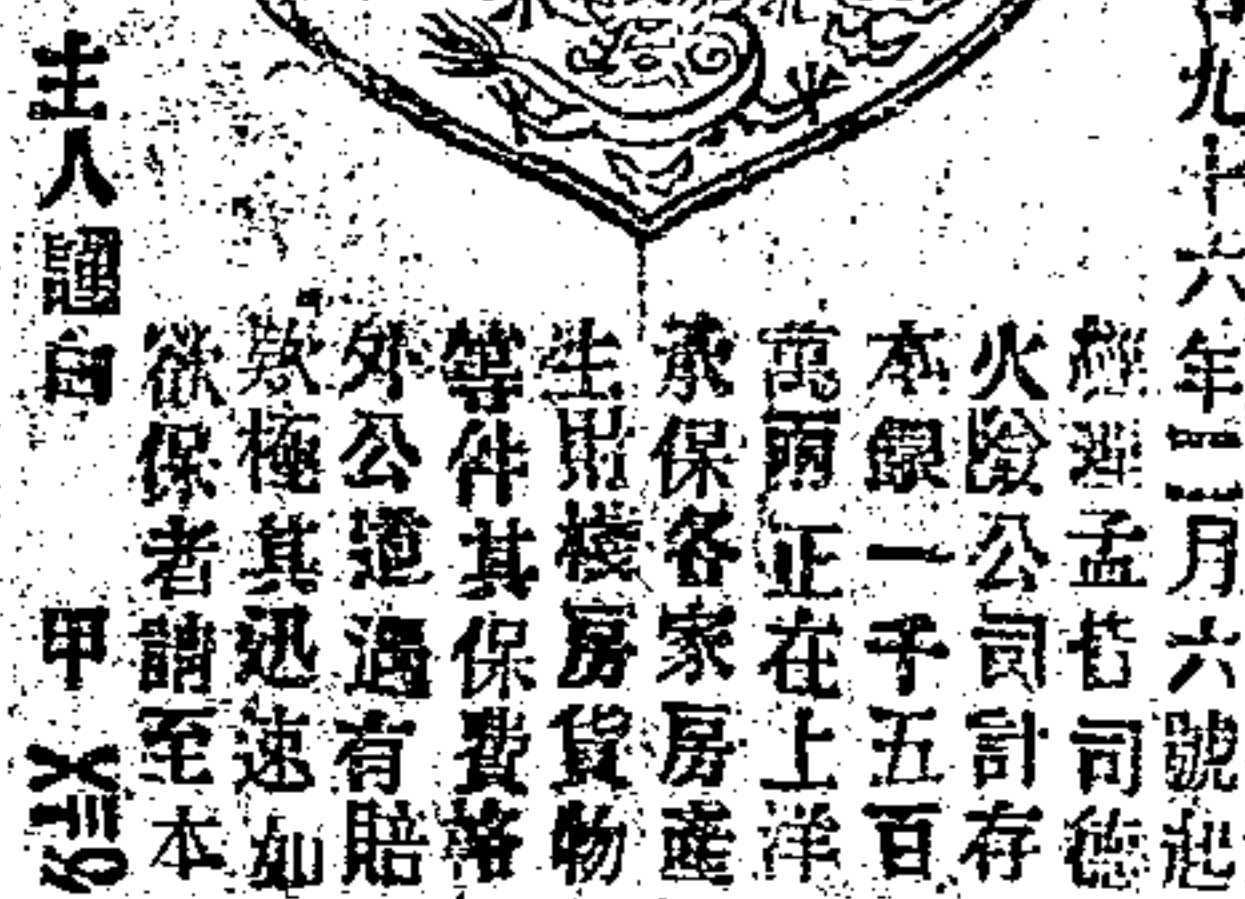 九十六年二月六號起
經理孟哲司德
火險公司計存
本銀一千五百
萬兩正在上洋
承保各家房產
生財棧房貨物
等件其保費格
外公道遇有賠
欵極其迅速如
欲保者請至本
主人謹白 甲